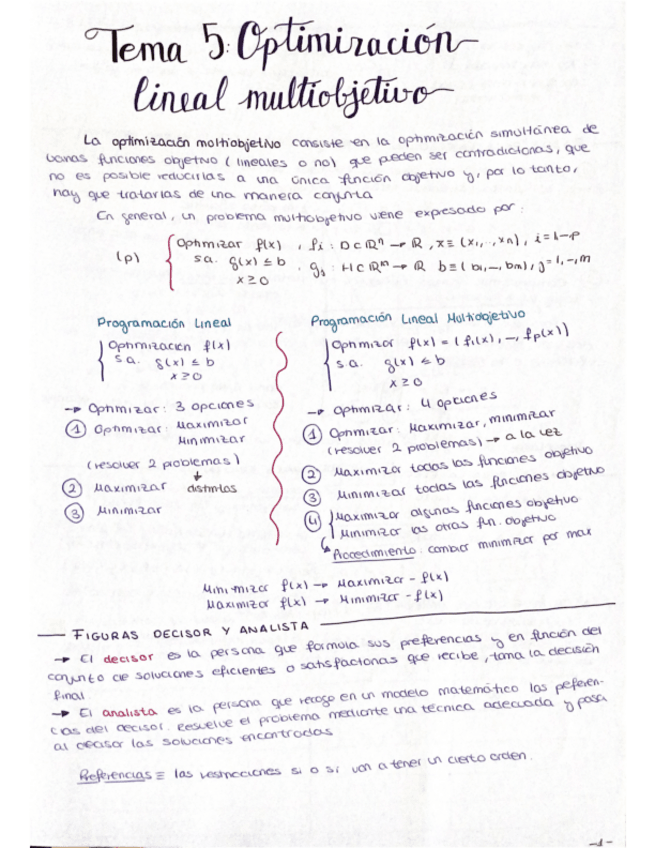 Tema 5: Optimización
lineal multiobjetivo
La optimización moltiobjetivo consiste en la optimización simultánea de
varias funciones objetivo (lineales o no) que pueden ser contradictorias, que
no es posible reducirlas a una única función objetivo y, por lo tanto,
hay que tratarlas de una manera conjunta
En general, un problema multiobjetivo viene expresado por:
(P) Optimizar f(x) , fi : D⊂ℝⁿ → ℝ , x≡(x₁,..,xn), i=1-p
s.a. g(x) ≤ b , gj : H⊂ℝᵐ → ℝ b≡(b₁,-,bm), j=1,-,m
x≥0
Programación Lineal
Optimización f(x)
s.a. g(x) ≤ b
x≥0
→ Optimizar: 3 opciones
① Optimizar: Maximizar
Minimizar
(resolver 2 problemas)
↓
distintos
② Maximizar
③ Minimizar
Programación Lineal Multiobjetivo
Optimizar f(x) = (f₁(x),-, fp(x))
s.a. g(x) ≤ b
x≥0
→ Optimizar: 4 opciones
① Optimizar: Maximizar, minimizar
(resolver 2 problemas) → a la vez
② Maximizar todas las funciones objetivo
③ Minimizar todas las funciones objetivo
④ Maximizar algunas funciones objetivo
Minimizar las otras fun. objetivo
↳ Procedimiento: cambiar minimizar por max
Minimizar f(x) → Maximizar - f(x)
Maximizar f(x) → Minimizar - f(x)
FIGURAS DECISOR Y ANALISTA
→ El decisor es la persona que formula sus preferencias y en función del
conjunto de soluciones eficientes o satisfactorias que recibe, toma la decisión
final
→ El analista es la persona que recoge en un modelo matemático las preferen-
cias del decisor. Resuelve el problema mediante una técnica adecuada y pasa
al decisor las soluciones encontradas
Preferencias ≡ las restricciones si o sí van a tener un cierto orden.
-1-